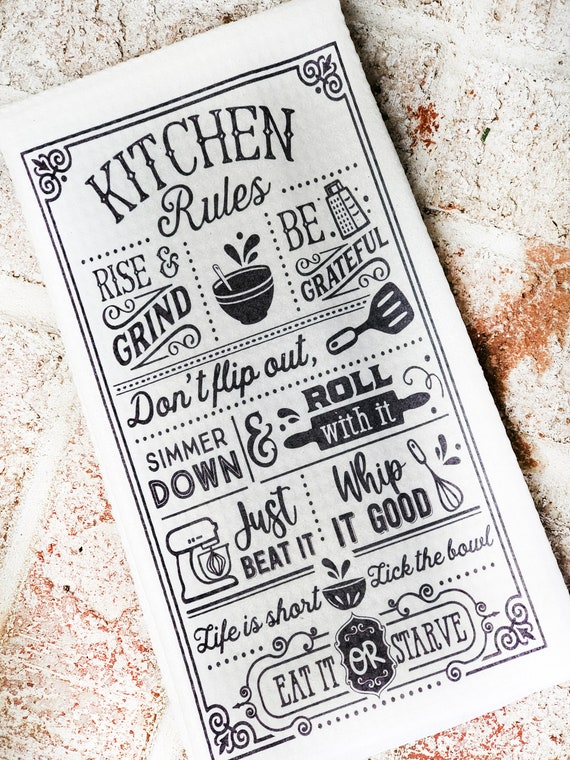 KITCHEN
Rules
RISE &
GRIND
BE
GRATEFUL
Don't flip out,
SIMMER
DOWN
&
ROLL
with it
Just
BEAT IT
Whip
IT GOOD
Life is short
Lick the bowl
EAT IT OR STARVE